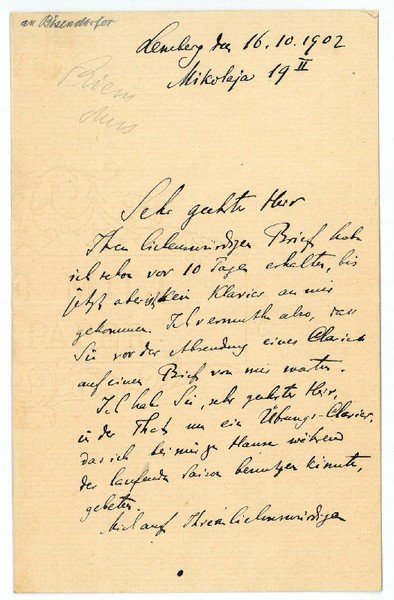 an Bösendorfer
Lemberg den 16.10.1902
Mikolaja 19 II
Sehr geehrter Herr
Ihren liebenswürdigen Brief habe
ich schon vor 10 Tagen erhalten, bis
jetzt aber ist kein Klavier an mir
gekommen. Ich vermuthe also, dass
Sie vor der Absendung eines Claviers
auf einen Brief von mir warten.
Ich habe Sie, sehr geehrter Herr,
in der That um ein Übungs-Clavier,
das ich bei mir zu Hause während
der laufenden Saison benutzen könnte,
gebeten.
auf Ihren liebenswürdigen